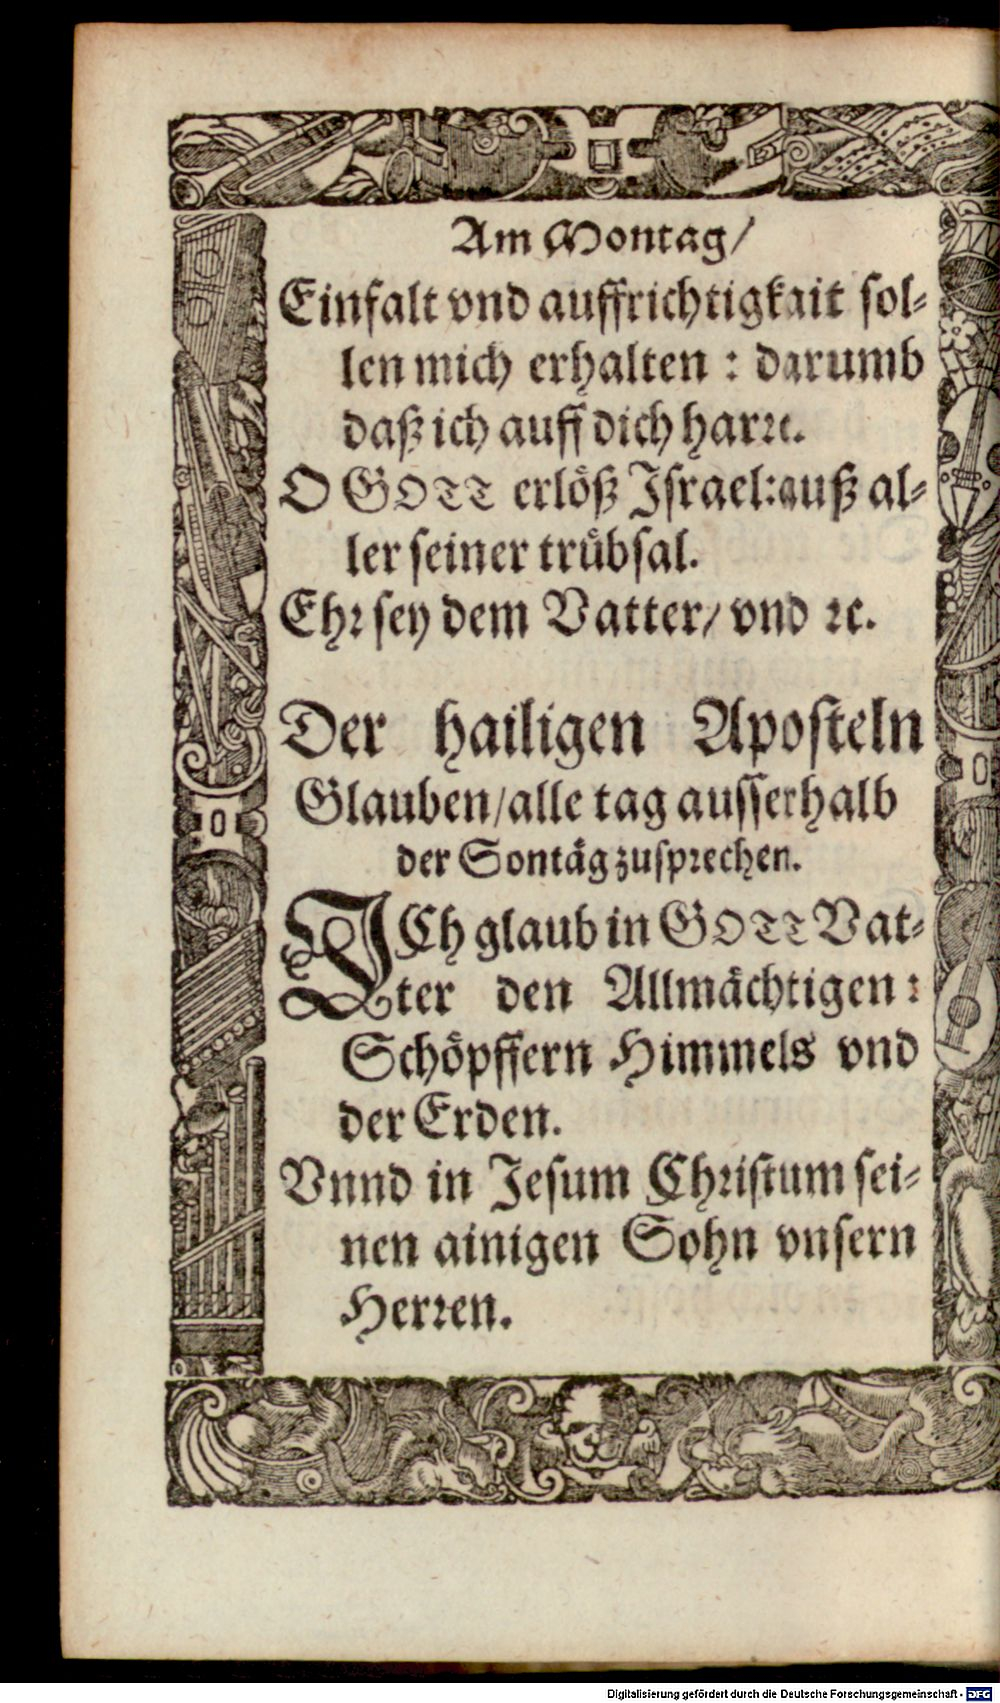 Am Montag/
Einfalt vnd auffrichtigkait sol-
len mich erhalten : darumb
daß ich auff dich harre.
O GOTT erlöß Israel: auß al-
ler seiner trübsal.
Ehr sey dem Vatter/ vnd ꝛc.
Der hailigen Aposteln
Glauben/ alle tag ausserhalb
der Sontäg zusprechen.
ICh glaub in GOTT Vat-
ter den Allmächtigen:
Schöpffern Himmels vnd
der Erden.
Vnnd in Jesum Christum sei-
nen ainigen Sohn vnsern
Herren.
Digitalisierung gefördert durch die Deutsche Forschungsgemeinschaft - DFG